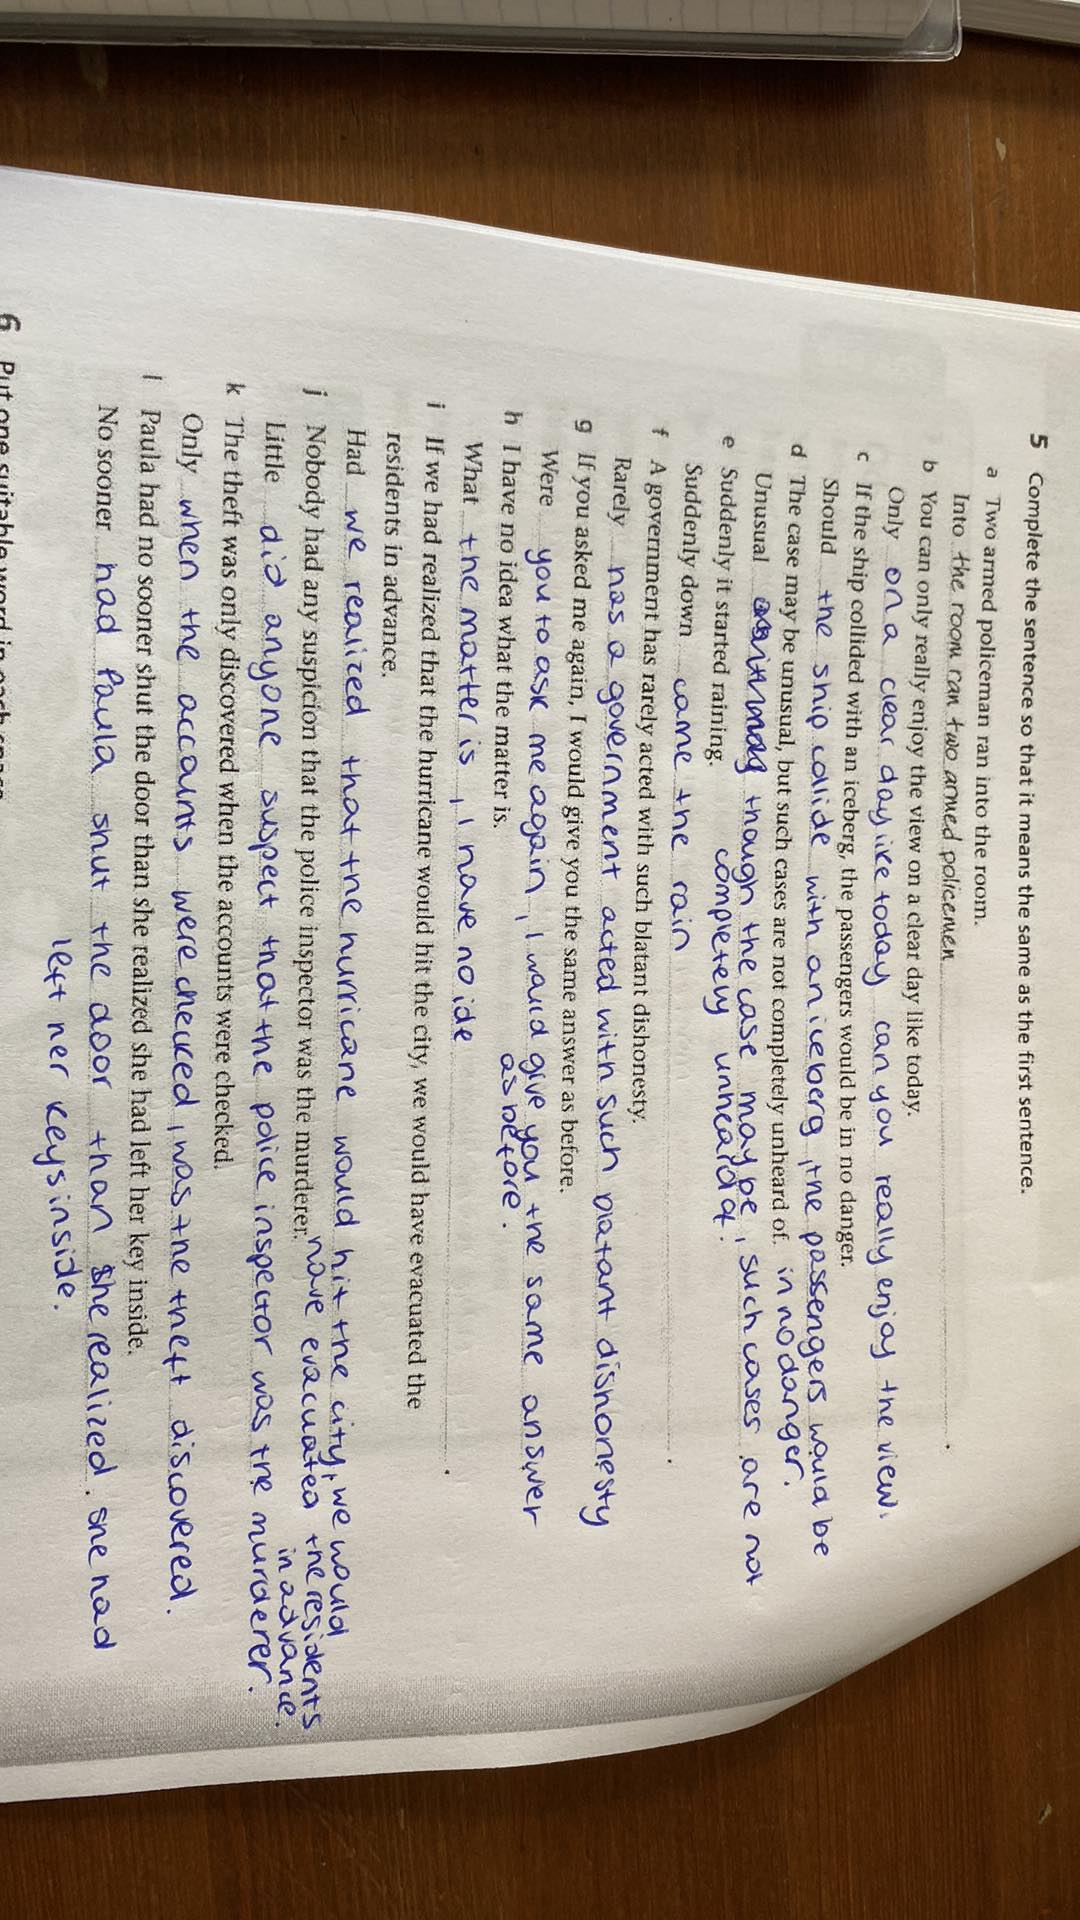 5 Complete the sentence so that it means the same as the first sentence.
a Two armed policeman ran into the room.
Into the room ran two armed policemen.
b You can only really enjoy the view on a clear day like today.
Only on a clear day like today can you really enjoy the view.
c If the ship collided with an iceberg, the passengers would be in no danger.
Should the ship collide with an iceberg, the passengers would be
in no danger.
d The case may be unusual, but such cases are not completely unheard of.
Unusual though the case may be, such cases are not
completely unheard of.
e Suddenly it started raining.
Suddenly down came the rain.
f A government has rarely acted with such blatant dishonesty.
Rarely has a government acted with such blatant dishonesty
g If you asked me again, I would give you the same answer as before.
Were you to ask me again, I would give you the same answer
as before.
h I have no idea what the matter is.
What the matter is, I have no ide
i If we had realized that the hurricane would hit the city, we would have evacuated the
residents in advance.
Had we realized that the hurricane would hit the city, we would
have evacuated the residents
in advance.
j Nobody had any suspicion that the police inspector was the murderer.
Little did anyone suspect that the police inspector was the murderer.
k The theft was only discovered when the accounts were checked.
Only when the accounts were checked, was the theft discovered.
l Paula had no sooner shut the door than she realized she had left her key inside.
No sooner had Paula shut the door than she realized she had
left her keys inside.
6 Put one suitable word in each space